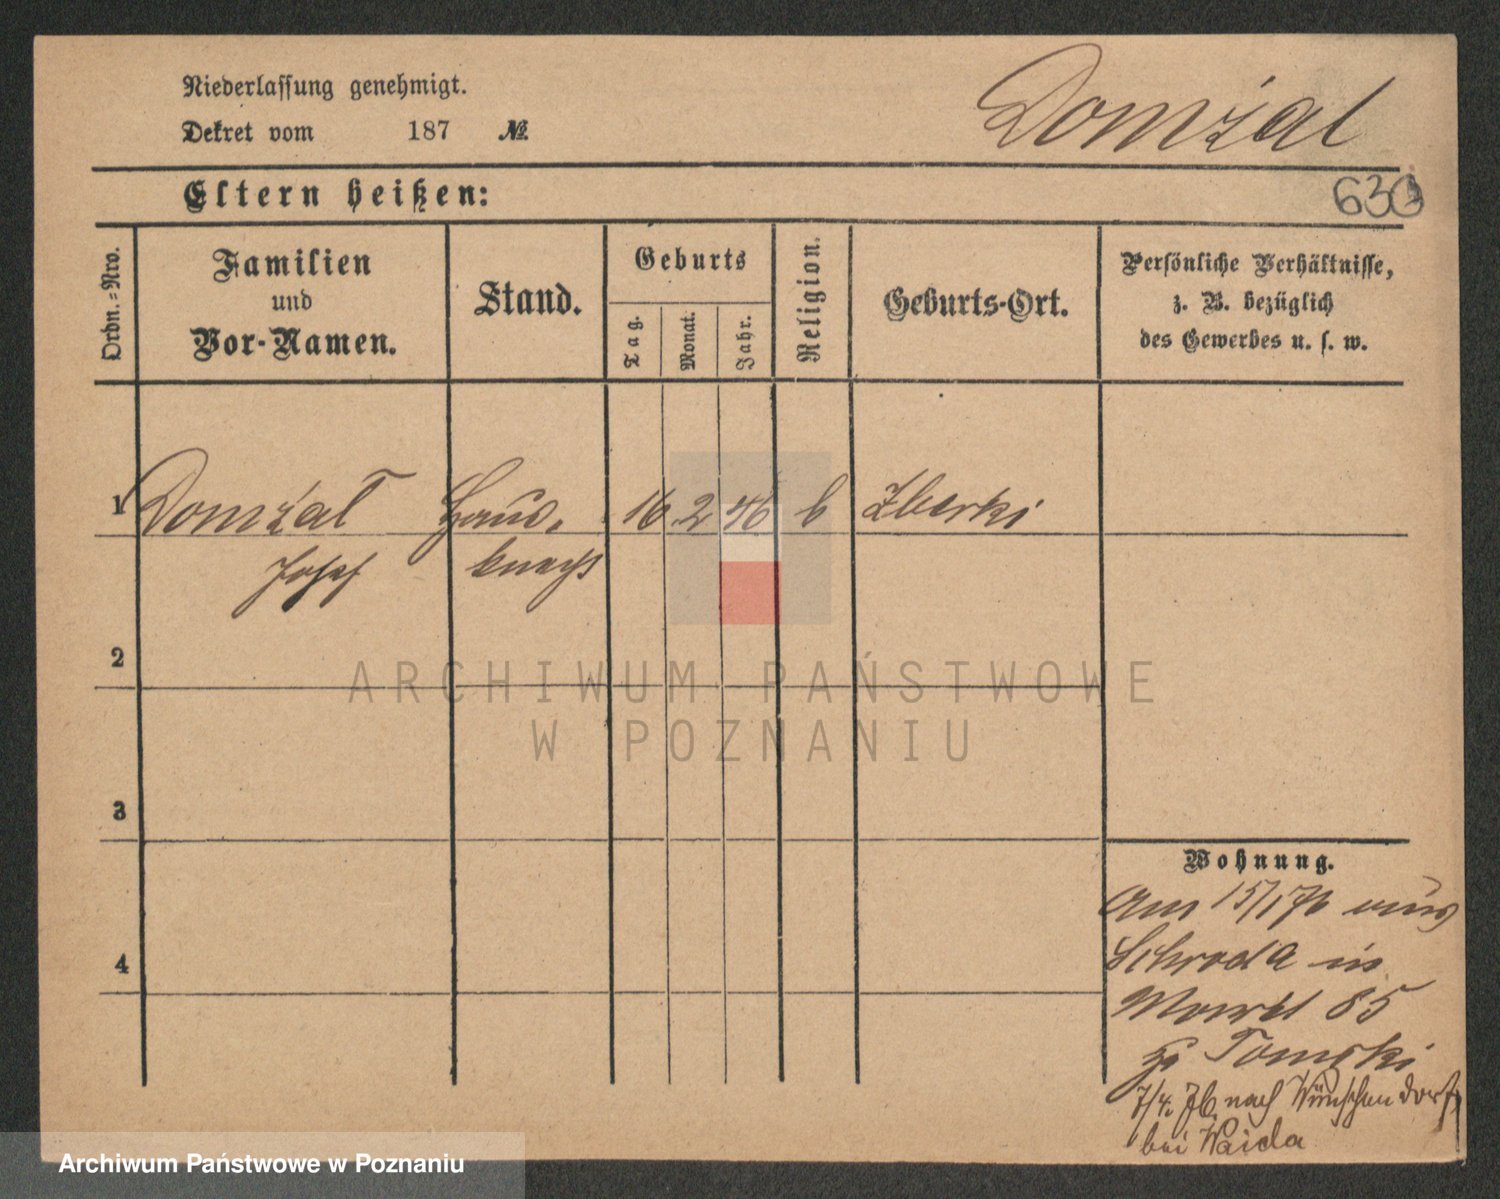 Niederlassung genehmigt.
Domżal
Dekret vom 187 №
Eltern heißen:
630
Ordn.=Nro.
Familien
und
Vor-Namen.
Stand.
Geburts
Tag.
Monat.
Jahr.
Religion.
Geburts-Ort.
Persönliche Verhältnisse,
z. B. bezüglich
des Gewerbes u. s. w.
1 Domżal Haus- 16 2 46 k Zberki
Josef knecht
2
ARCHIWUM PAŃSTWOWE
W POZNANIU
3
Wohnung.
Am 15/1 76 aus
Schroda in
Markt 85
zu Tomski
4
7/4. 76. nach Wünschendorf
bei Waida
Archiwum Państwowe w Poznaniu